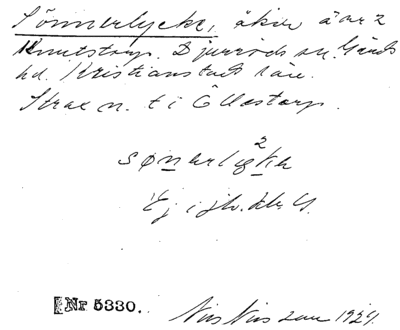 Sönnerlycke, åker å ä nr 2
Knutstorp. Djurröds sn. Gärds
hd. Kristianstads län.
Strax n. t i Ollestorp.
sønerlyke
2
Ej i jb.
Nr 5330. Nils Nilsson 1929.